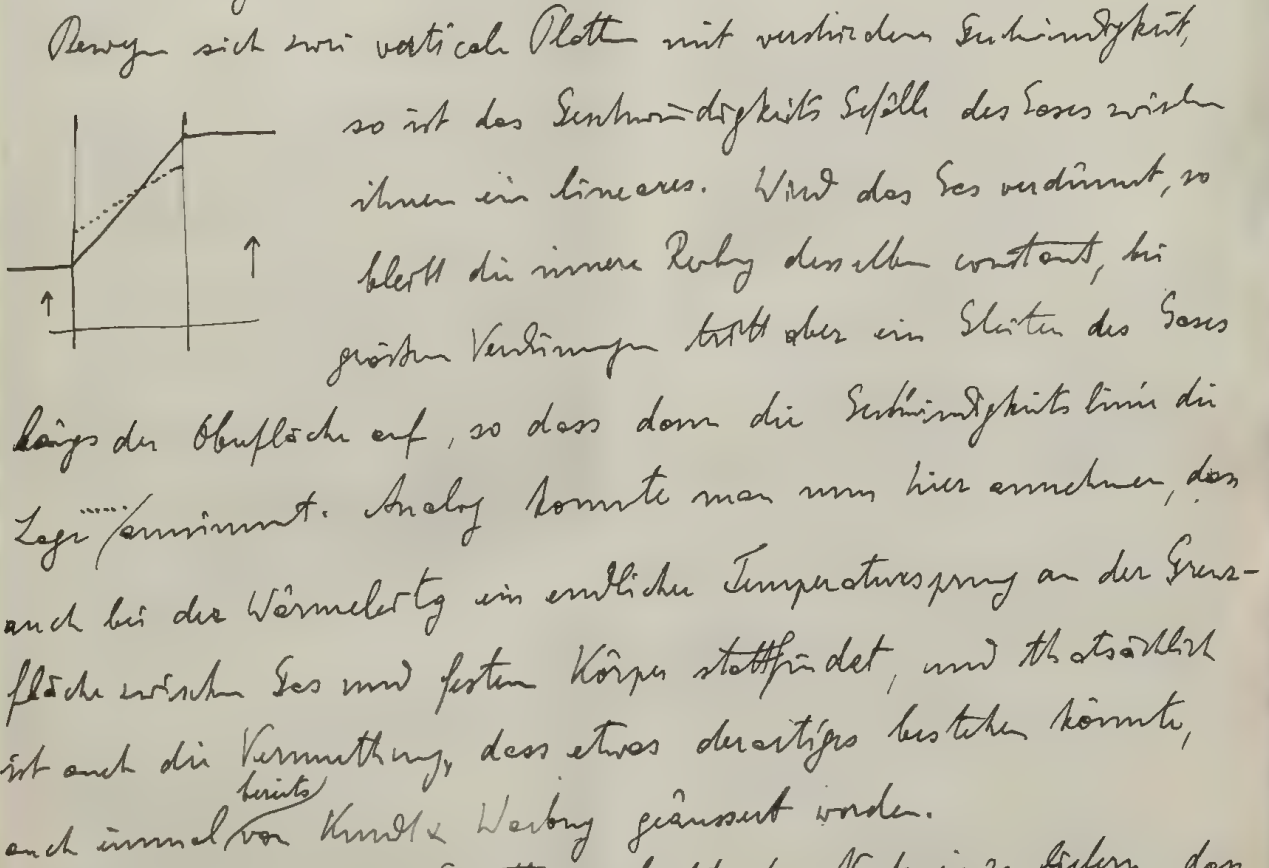 Bewegen sich zwei verticale Platten mit verschiedener Geschwindigkeit,
so ist das Geschwindigkeits Gefälle des Gases zwischen
ihnen ein lineares. Wird das Gas verdünnt, so
bleibt die innere Reibung desselben constant, bei
größeren Verdünnungen tritt aber ein Gleiten des Gases
längs der Oberfläche auf, so dass dann die Geschwindigkeitslinie die
Lage ...... annimmt. Analog konnte man nun hier annehmen, dass
auch bei der Wärmeleitg ein endlicher Temperatursprung an der Grenz-
fläche zwischen Gas und festem Körper stattfindet, und thatsächlich
ist auch die Vermuthung, dass etwas derartiges bestehen könnte,
auch einmal bereits von Kundt & Warburg geäussert worden.